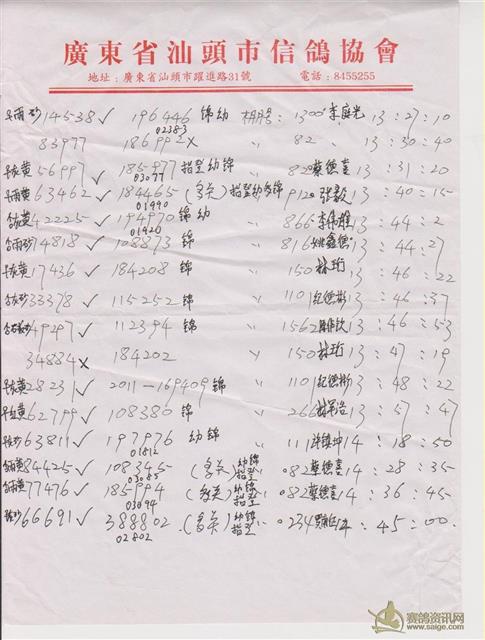 廣東省汕頭市信鴿協會
地址：廣東省汕頭市躍進路31號 電話：8455255
雨砂14538✓ 196446 錦幼 1300 李庭光 13:27:10
02383
83977 186992× 〃 82 〃 13:30:40
黄56997✓ 185977 指定幼錦 〃 82 蔡德喜 13:31:20
03077
雨黄63462✓ 184465 (多关)指定幼多錦 912 張毅 13:40:15
01990
黄42225✓ 194970 錦幼 〃 866 李伟雄 13:44:2
01920
雨砂74818✓ 108873 錦 〃 816 姚鑫德 13:44:27
黄17436✓ 184208 錦 〃 150 林珩 13:46:22
砂33378✓ 115252 錦 〃 1101 纪德彬 13:46:37
49297✓ 112394 錦 〃 1562 13:46:53
34884× 184202 〃 150 林珩 13:47:19
黄28231✓ 2011-169409 錦 〃 1101 纪德彬 13:48:22
黄62799✓ 108380 錦 〃 266 13:57:47
砂63811✓ 197976 幼錦 〃 111 許鎮坤 14:18:50
01812
雨黄84425✓ 108345 (多关)幼錦指定 〃 082 蔡德喜 14:28:35
03085
雨黄77476✓ 185994 (多关)幼錦指定 〃 082 蔡德喜 14:36:45
03094
砂66691✓ 388802 (多关)幼錦指定 〃 0234 14:45:00
02802
赛鸽资讯网
www.saige.com